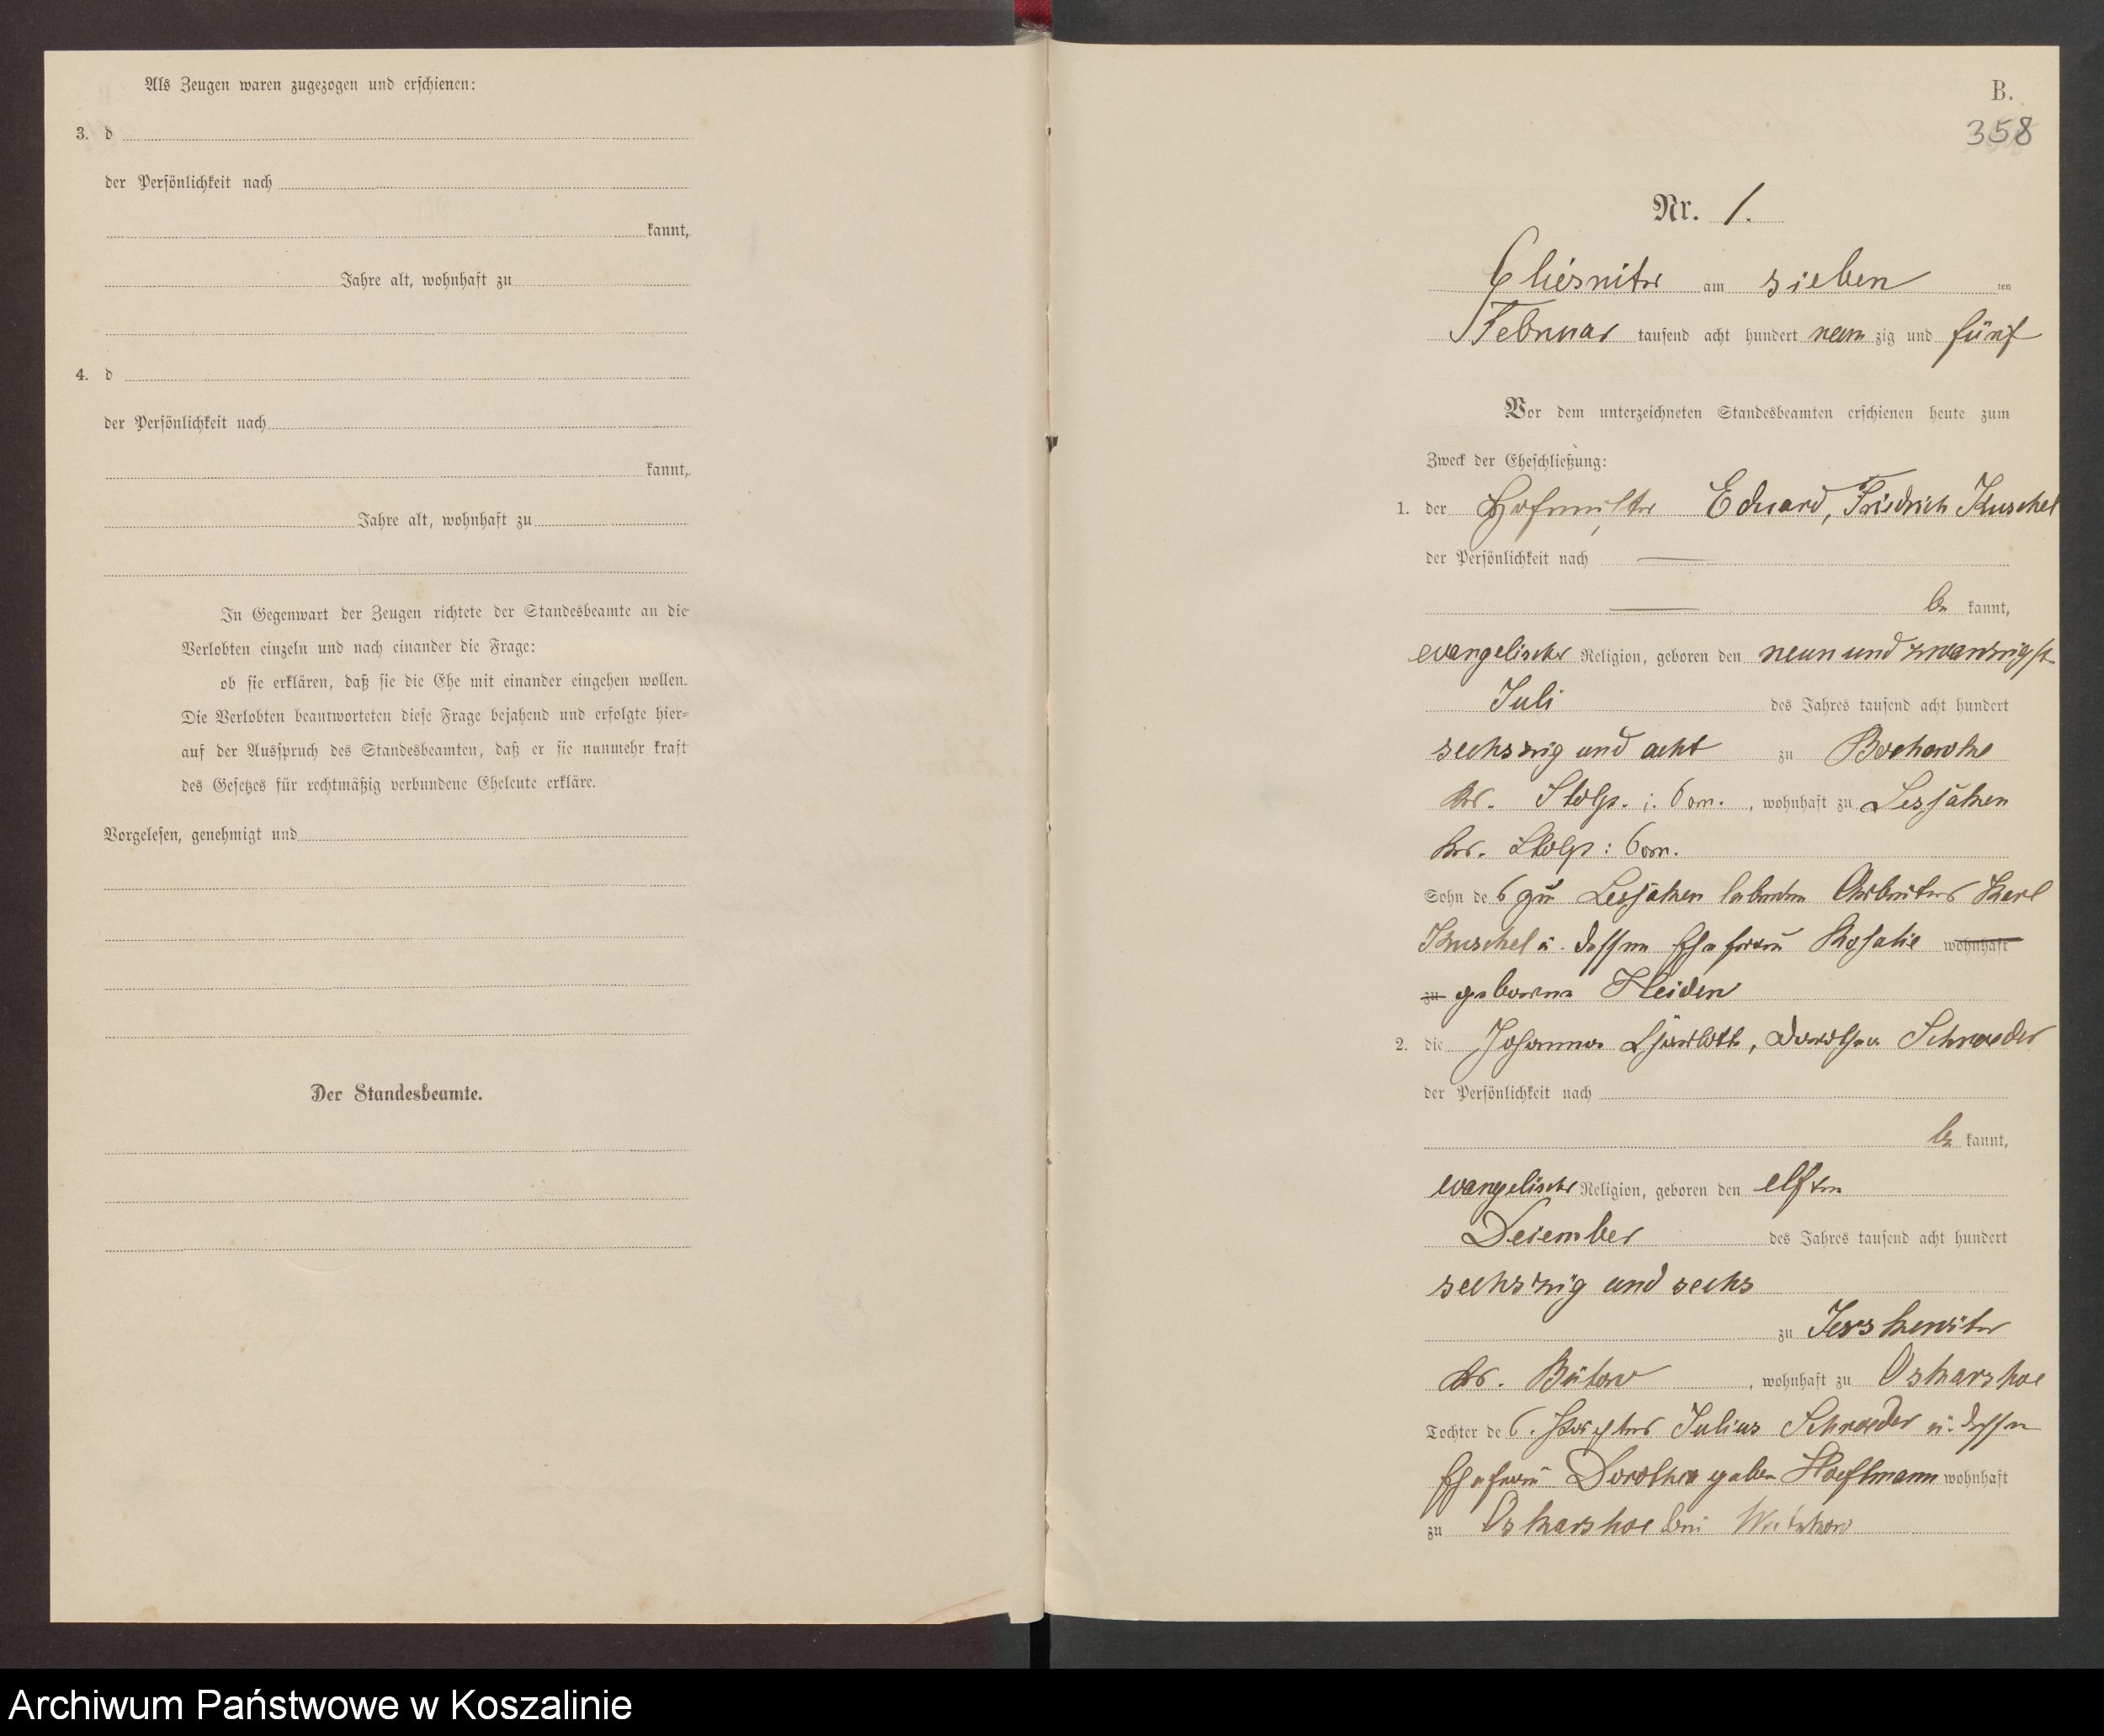 Als Zeugen waren zugezogen und erschienen:
3. d
der Persönlichkeit nach
kannt,
Jahre alt, wohnhaft zu
4. d
der Persönlichkeit nach
kannt,
Jahre alt, wohnhaft zu
In Gegenwart der Zeugen richtete der Standesbeamte an die
Verlobten einzeln und nach einander die Frage:
ob sie erklären, daß sie die Ehe mit einander eingehen wollen.
Die Verlobten beantworteten diese Frage bejahend und erfolgte hier-
auf der Ausspruch des Standesbeamten, daß er sie nunmehr kraft
des Gesetzes für rechtmäßig verbundene Eheleute erkläre.
Vorgelesen, genehmigt und
Der Standesbeamte.
B.
358
Nr. 1.
am sieben ten
Februar tausend acht hundert neun zig und fünf
Vor dem unterzeichneten Standesbeamten erschienen heute zum
Zweck der Eheschließung:
1. der Eduard, Friedrich Kuschel
der Persönlichkeit nach —
— be kannt,
evangelischer Religion, geboren den neun und zwanzigst
Juli des Jahres tausend acht hundert
sechszig und acht zu
Kr. Stolp. i. Pom. , wohnhaft zu
Kr. Stolp i. Pom.
Sohn des zu lebenden Arbeiters Karl
Kuschel u. dessen Ehefrau Rosalie wohnhaft
zu geborne
2. die Johanna Charlotte, Dorothea Schroeder
der Persönlichkeit nach
be kannt,
evangelischer Religion, geboren den elften
Dezember des Jahres tausend acht hundert
sechszig und sechs
zu
Kr. Bütow , wohnhaft zu Oskarshoe
Tochter des Julius Schroeder u. dessen
Ehefrau Dorothea geben wohnhaft
zu Oskarshoe bei
Archiwum Państwowe w Koszalinie